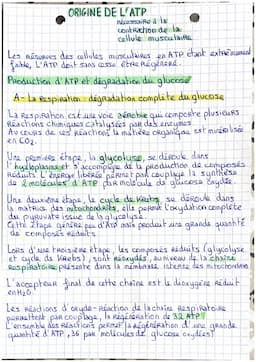 ORIGINE DE L'ATP
nécessaire à la
contraction de la
cellule musculaire
Les réserves des cellules musculaires en ATP étant extrêmement
faible, l'ATP doit sans cesse être régénéré.
Production d'ATP et dégradation du glucose
A - La respiration : dégradation complète du glucose
La respiration est une voie aérobie qui comporte plusieurs
réactions chimiques catalysées par des enzymes.
Au cours de ces réactions la matière organique est minéralisée
en CO2.
Une première étape, la glycolyse, se déroule dans
l'hyaloplasme et s'accompagne de la production de composés
réduits. L'énergie libérée permet par couplage la synthèse
de 2 molécules d'ATP par molécule de glucose oxydée.
Une deuxième étape, le cycle de Krebs, se déroule dans
la matrice des mitochondries, elle permet l'oxydation complète
du pyruvate issue de la glycolyse.
Cette étape génère peu d'ATP mais produit une grande quantité
de composés réduits.
Lors d'une troisième étape, les composés réduits (glycolyse
et cycle de Krebs), sont réoxydés, au niveau de la chaîne
respiratoire présente dans la membrane interne des mitochondries
L'accepteur final de cette chaîne est le dioxygène réduit
en H2O
Les réactions d'oxydo-réaction de la chaîne respiratoire
permettent par couplage, la régénération de 32 ATP.
L'ensemble des réactions permet la régénération d'une grande
quantité d'ATP, 36 par molécules de glucose oxydées